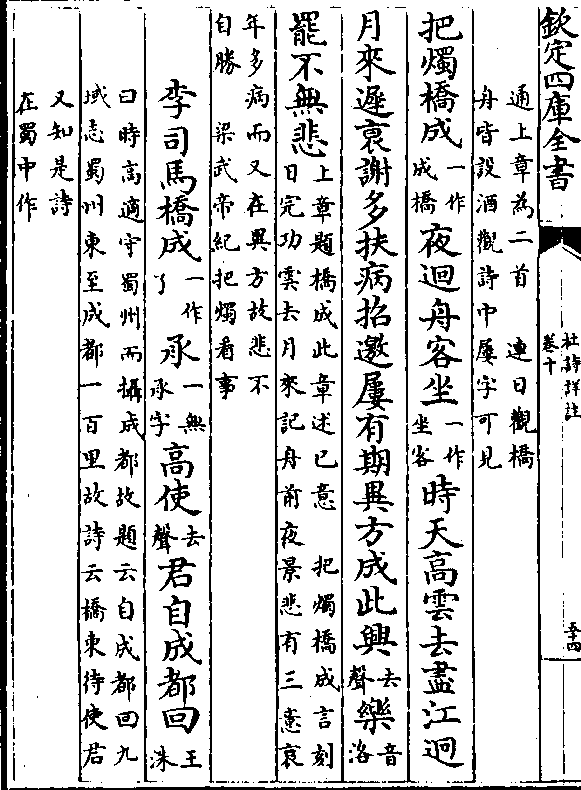 欽定四庫全書
杜詩詳註
卷十
五十四
通上章為二首　連日觀橋
舟皆設酒觀詩中屢字可見
把燭橋成一作
成橋夜迴舟客坐一作
坐客時天高雲去盡江迥
月來遲衰謝多扶病招邀屢有期異方成此興去
聲樂音
洛
罷不無悲上章題橋成此章述已意　把燭橋成言刻
日完功雲去月來記舟前夜景悲有三意衰
年多病而又在異方故悲不
自勝　梁武帝紀把燭看事
李司馬橋成一作
了承一無
承字高使去
聲君自成都回王
洙
曰時高適守蜀州而攝成都故題云自成都回九
域志蜀州東至成都一百里故詩云橋東待使君
又知是詩
在蜀中作